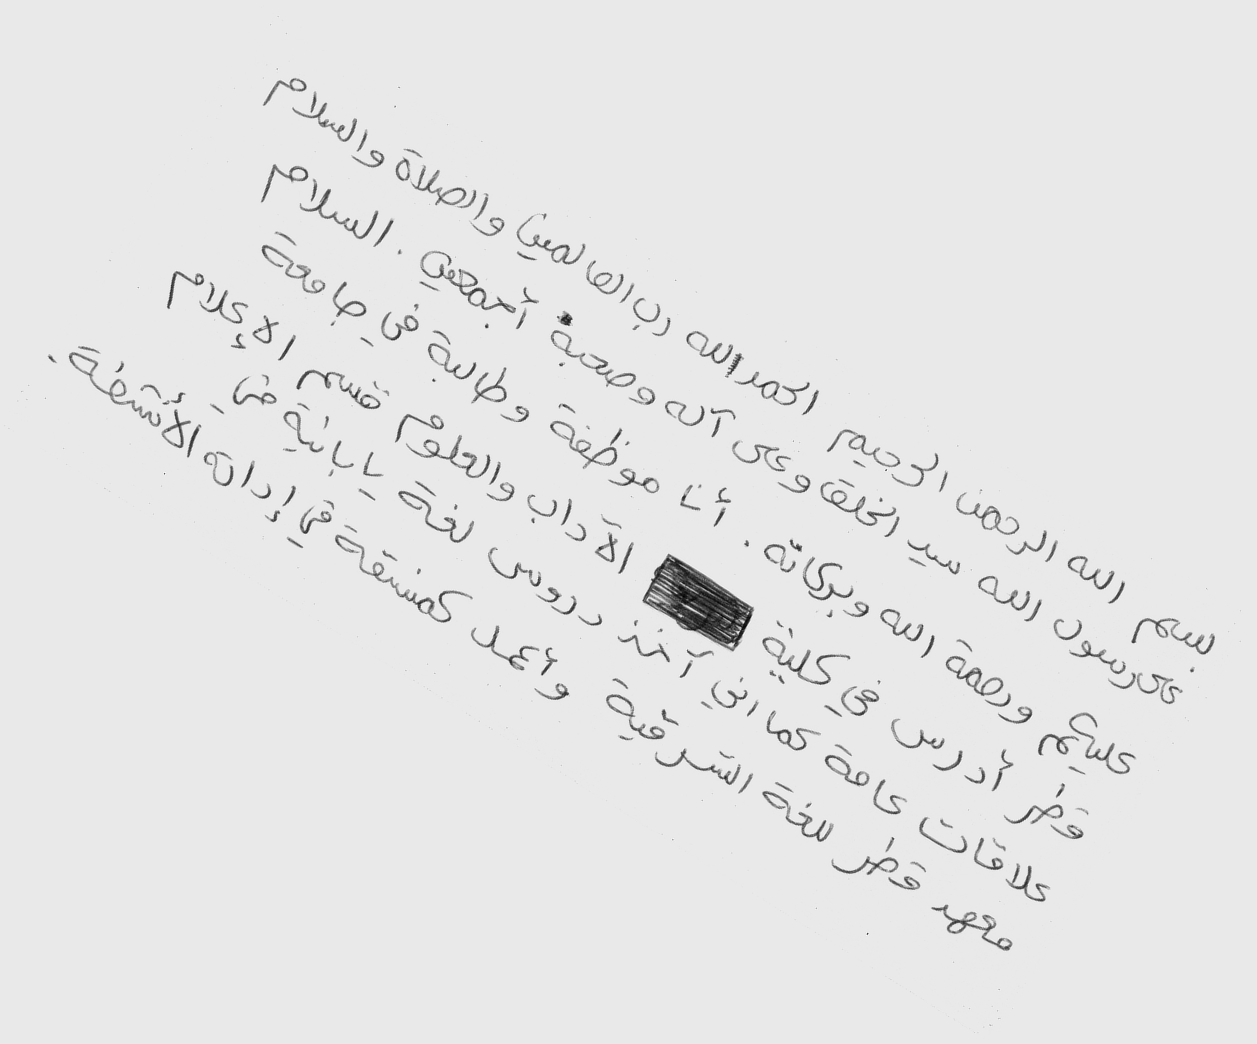 بسم الله الرحمن الرحيم الحمدالله رب العالمين والصلاة والسلام
على رسول الله سيد الخلق وعلى آله وصحبة أجمعين . السلام
عليكم ورحمة الله وبركاته . أنا موظفة وطالبة في جامعة
قطر أدرس في كلية الآداب والعلوم قسم الإعلام
علاقات عامة كما اني آخذ دروس لغة يابانية في
معهد قطر للغة الشرقية وأعمل كمنسقة في إدارة الأنشطة .